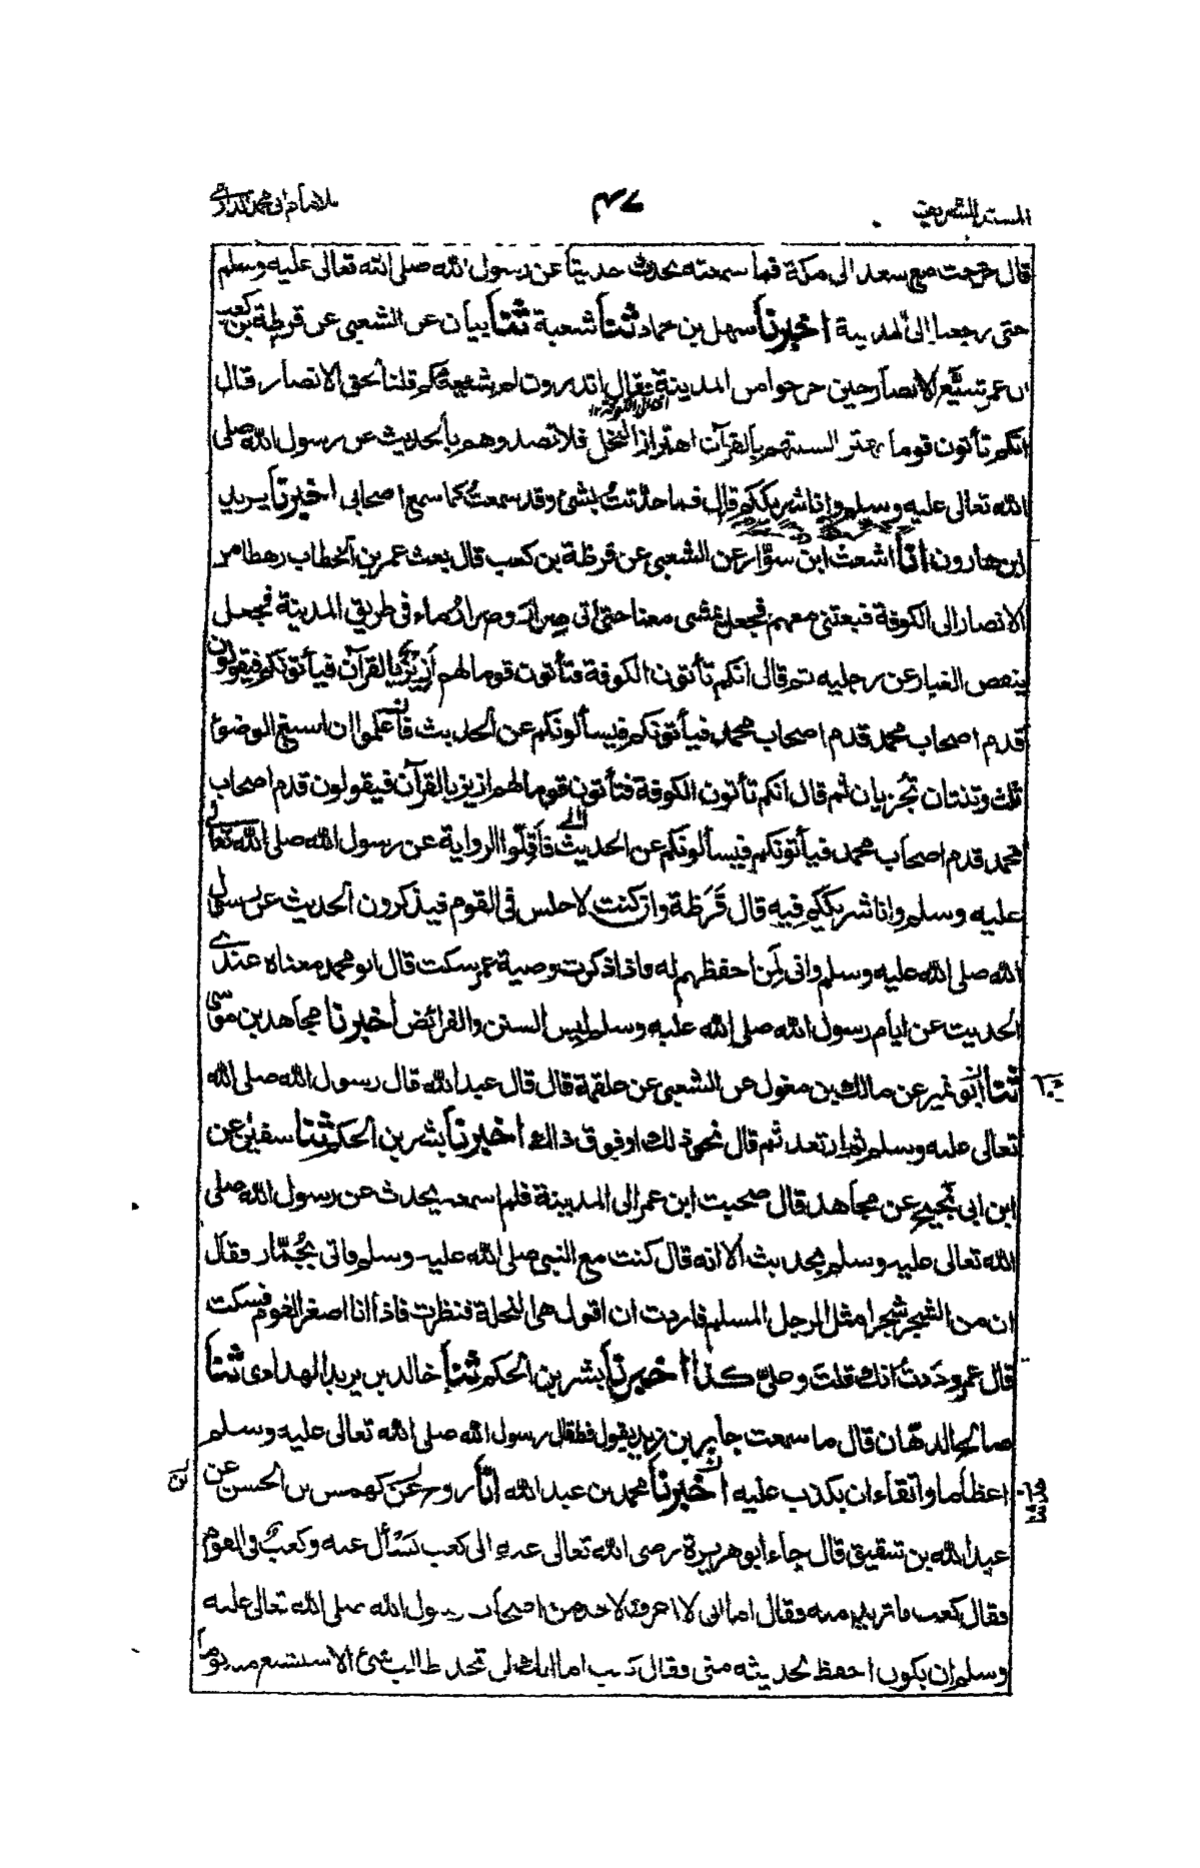 المسند الشريف ٤٧ للامام ابى محمد الدارمى
قال خرجت مع سعد الى مكة فما سمعته يحدث حديثا عن رسول الله صلى الله تعالى عليه وسلم
حتى رجعنا الى المدينة اخبرنا سهل بن حماد ثنا شعبة ثنا بيان عن الشعبى عن قرظة بن كعب
ان عمر شيع الانصار حين خرجوا من المدينة فقال اتدرون لم شيعتكم قلنا لحق الانصار قال
انكم تأتون قوما تهتز السنتهم بالقرآن اهتزاز النخل فلا تصدوهم بالحديث عن رسول الله صلى
الله تعالى عليه وسلم وانا شريككم قال فما حدثت بشئ وقد سمعت كما سمع اصحابى اخبرنا يزيد
ابن هارون انا اشعث ابن سوّار عن الشعبى عن قرظة بن كعب قال بعث عمر بن الخطاب رهطا من
الانصار الى الكوفة فبعثنى معهم فجعل يمشى معنا حتى اتى صرار وصرار ماء فى طريق المدينة فجعل
ينفض الغبار عن رجليه ثم قال انكم تأتون الكوفة فتأتون قوما لهم أزيز بالقرآن فيأتونكم فيقولون
قدم اصحاب محمد قدم اصحاب محمد فيأتونكم فيسألونكم عن الحديث فاعلموا ان اسبغ الوضوء
ثلث وثنتان تجزيان ثم قال انكم تأتون الكوفة فتأتون قوما لهم ازيز بالقرآن فيقولون قدم اصحاب
محمد قدم اصحاب محمد فيأتونكم فيسألونكم عن الحديث فأقلّوا الرواية عن رسول الله صلى الله تعالى
عليه وسلم وانا شريككم فيه قال قَرَظة وان كنت لاجلس فى القوم فيذكرون الحديث عن رسول
الله صلى الله عليه وسلم وانى لمن احفظهم له فاذا ذكرت وصية عمر سكت قال ابو محمد معناه عندى
الحديث عن ايام رسول الله صلى الله عليه وسلم ليس السنن والفرائض اخبرنا مجاهد بن موسى
ثنا ابن نمير عن مالك بن مغول عن الشعبى عن علقمة قال قال عبد الله قال رسول الله صلى الله
تعالى عليه وسلم ثم ارتعد ثم قال نحو ذلك او فوق ذاك اخبرنا بشر بن الحكم ثنا سفين عن
ابن ابى نجيح عن مجاهد قال صحبت ابن عمر الى المدينة فلم اسمعه يحدث عن رسول الله صلى
الله تعالى عليه وسلم بحديث الا انه قال كنت مع النبى صلى الله عليه وسلم فاتى بجُمّار فقال
ان من الشجر شجرا مثل الرجل المسلم فاردت ان اقول هى النخلة فنظرت فاذا انا اصغر القوم فسكت
قال عمر وددت انك قلت وعلىّ كذا اخبرنا بشر بن الحكم ثنا خالد بن يزيد الهدادى ثنا
صالح الدهّان قال ما سمعت جابر بن زيد يقول قط قال رسول الله صلى الله تعالى عليه وسلم
اعظاما واتقاء ان يكذب عليه اخبرنا محمد بن عبد الله انا روح عن كهمس بن الحسن عن
عبد الله بن شقيق قال جاء ابو هريرة رضى الله تعالى عنه الى كعب يسأل عنه وكعب فى القوم
فقال كعب ما تريد منه فقال اما انى لا اعرف لاحد من اصحاب رسول الله صلى الله تعالى عليه
وسلم ان يكون احفظ لحديثه منى فقال كعب اما انك لن تجد طالب شئ الا سيشبع منه يوما